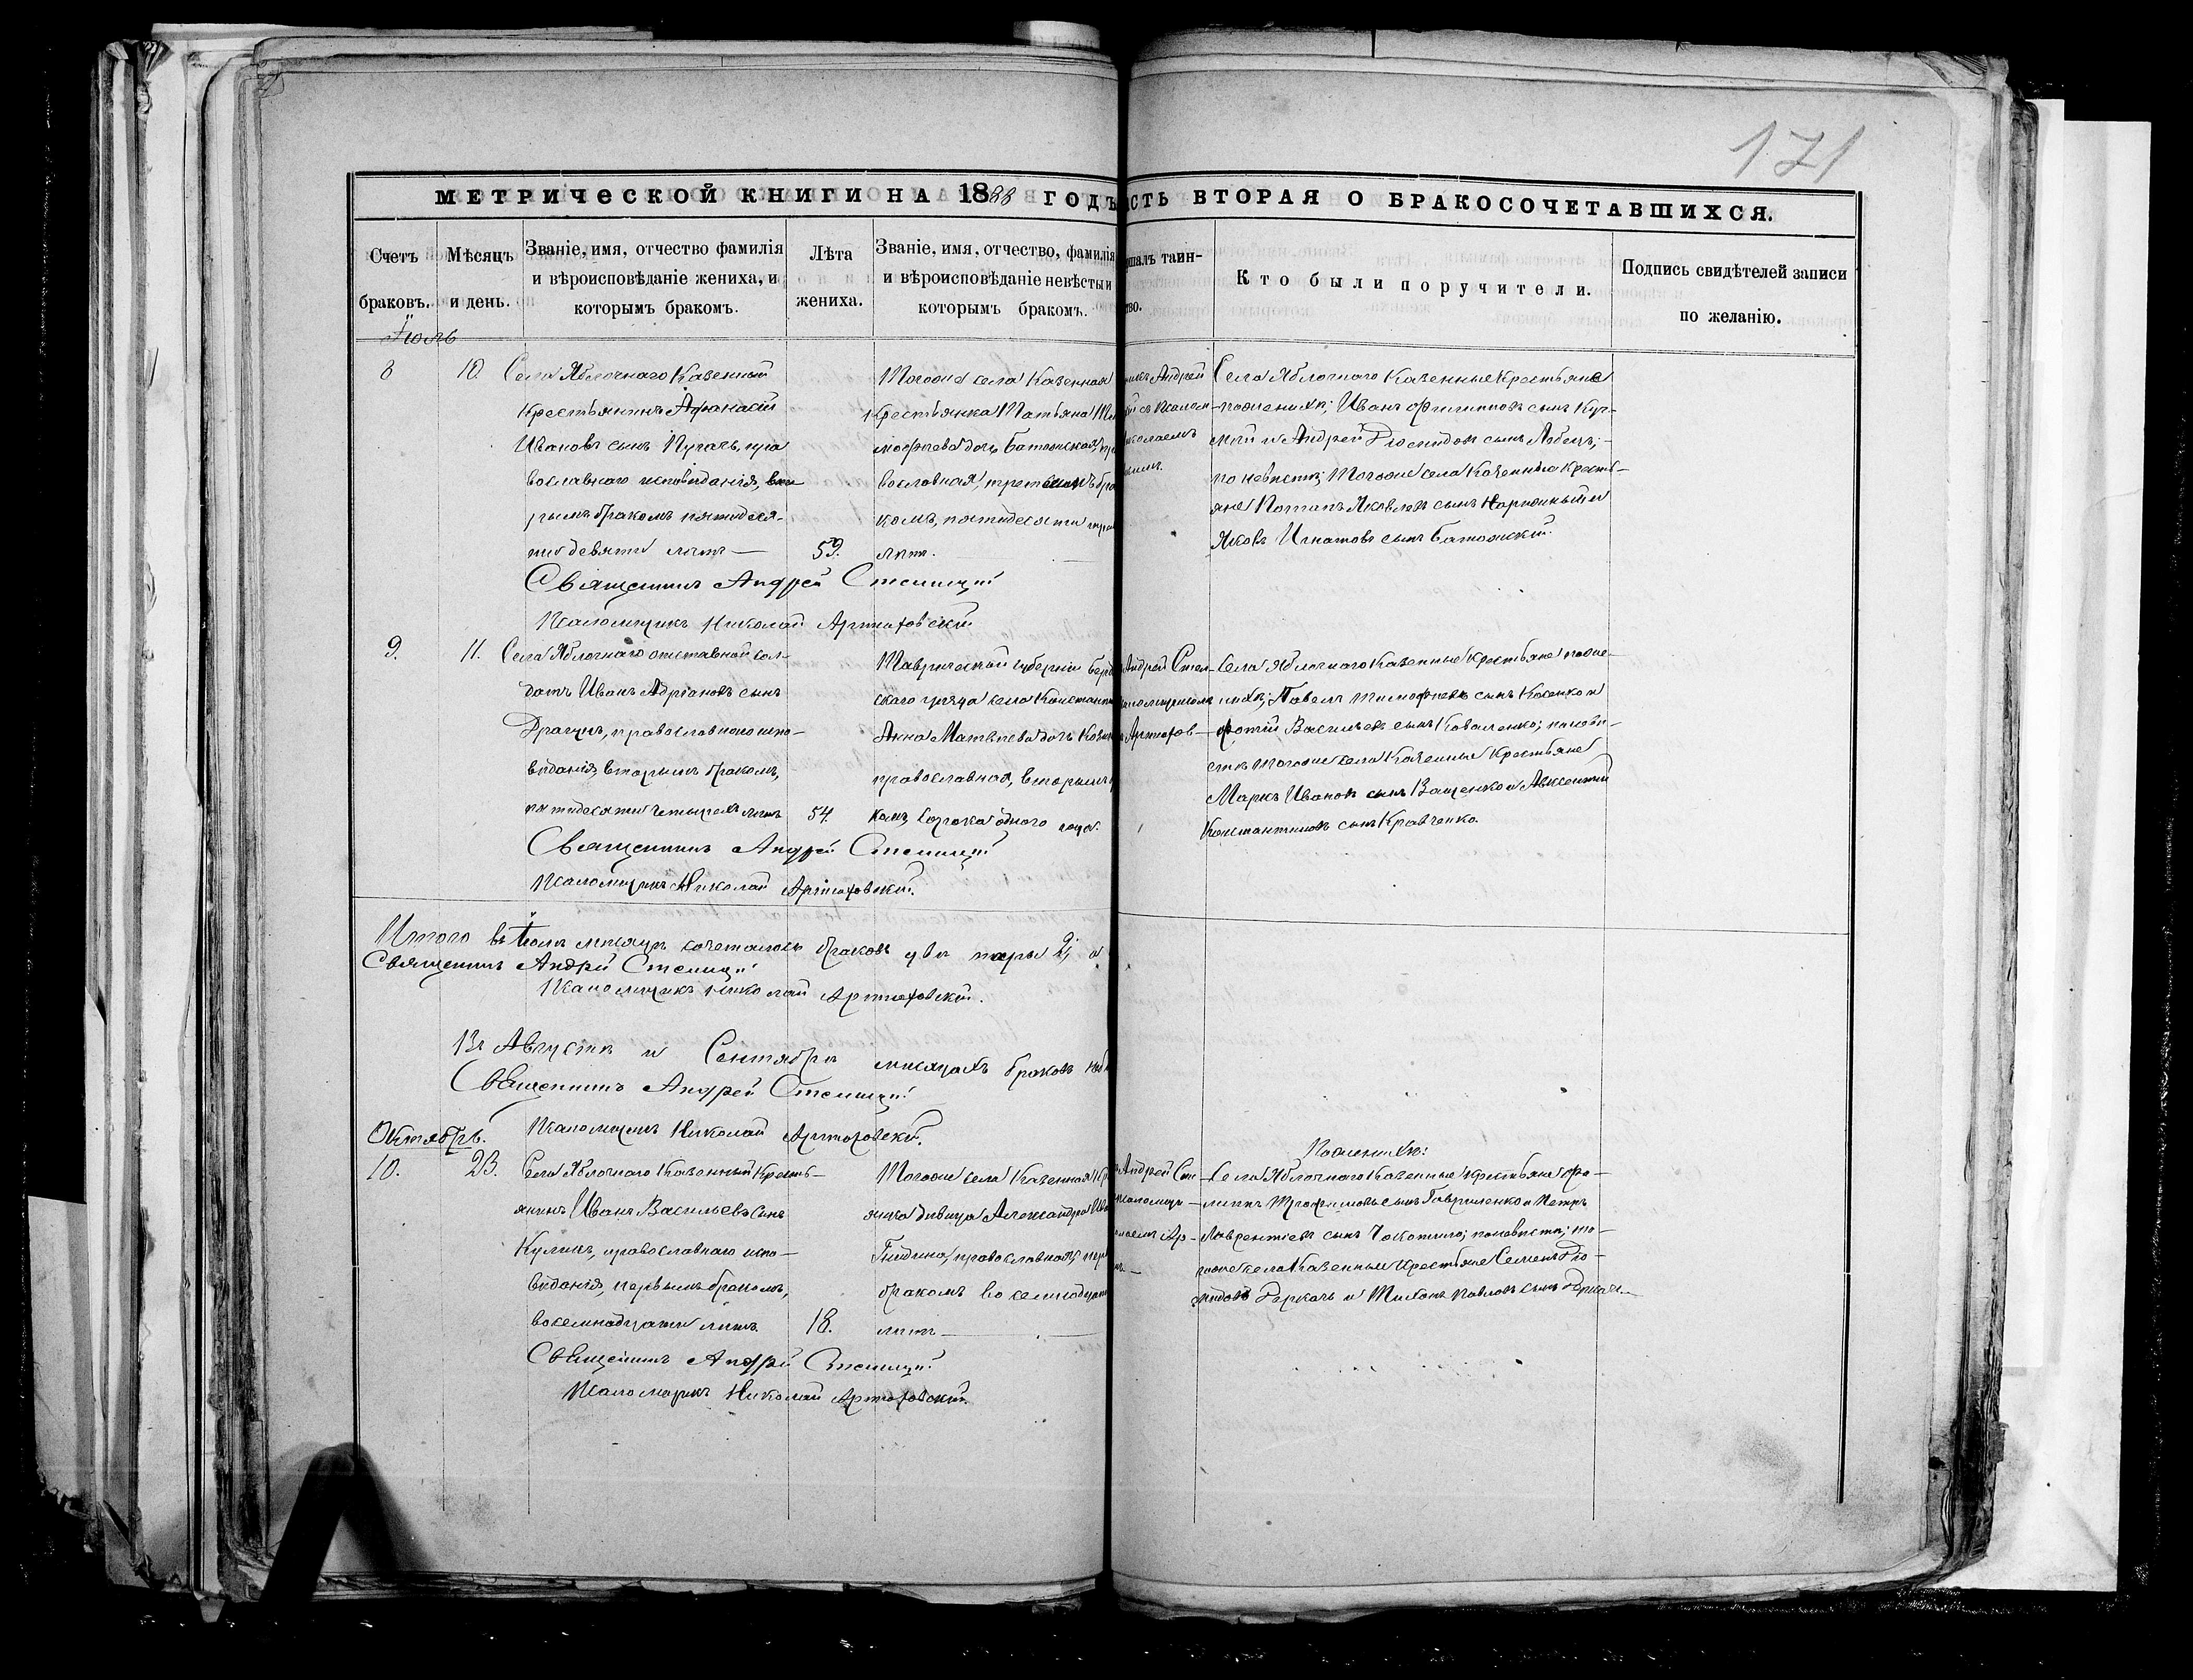 171
МЕТРИЧЕСКОЙ КНИГИ НА 1888 ГОДЪ
СТЬ ВТОРАЯ О БРАКОСОЧЕТАВШИХСЯ.
Счетъ браковъ.
Мѣсяцъ и день.
Званіе, имя, отчество фамилія
и вѣроисповѣданіе жениха, и
которымъ бракомъ.
Лѣта
жениха.
Званіе, имя, отчество, фамилія
и вѣроисповѣданіе невѣсты и
которымъ бракомъ.
шалъ таин-
тво.
Кто были поручители.
Подпись свидѣтелей записи
по желанію.
Іюль
8 10. Села Яблочнаго Казенный
Крестьянинъ Афанасій
Ивановъ сынъ Пугачъ, пра
вославнаго исповѣданія, вто
рымъ бракомъ пятидеся-
ти девяти лѣтъ — 59.
Тогоже села Казенная
Крестьянка Татьяна Ти
мофѣева дочь Батожская, пра
вославная, третьимъ бра
комъ, пятидесяти
лѣтъ.
Андрей
Николаемъ
Села Яблочнаго Казенные Крестьяне
по женихѣ; Иванъ Филипповъ сынъ Куч-
мій и Андрей Діомидовъ сынъ
по невѣстѣ; Тогоже села Казенные Кресть-
яне Потапъ Яковлевъ сынъ Нарожный и
Яковъ Игнатовъ сынъ Батожскій.
Священникъ Андрей
Псаломщикъ Николай Артюховскій
9. 11. Села Яблочнаго отставной сол-
датъ Иванъ Адріановъ сынъ
Драгунъ, православнаго испо-
вѣданія, вторымъ бракомъ,
пятидесяти четырехъ лѣтъ 54.
Таврической губерніи Берд
скаго уѣзда села Константи
Анна Матвѣева дочь
православная, вторымъ
комъ, сорока одного года.
Андрей
Артюхов-
Села Яблочнаго Казенные Крестьяне по же-
нихѣ; Павелъ Тимофѣевъ сынъ Косенко и
Фотій Васильевъ сынъ Коваленко; по невѣ-
стѣ Тогоже села Казенные Крестьяне
Маркъ Ивановъ сынъ Ващенко и Авксентій
Константиновъ сынъ Кравченко.
Священникъ Андрей
Псаломщикъ Николай Артюховскій.
Итого въ Іюлѣ мѣсяцѣ сочеталось браковъ два пары 2;
Священникъ Андрей
Псаломщикъ Николай Артюховскій.
Въ Августѣ и Сентябрѣ мѣсяцахъ браковъ не б
Священникъ Андрей
Псаломщикъ Николай Артюховскій.
Октябрь.
10. 23. Села Яблочнаго Казенный Кресть-
янинъ Иванъ Васильевъ сынъ
Куликъ, православнаго испо-
вѣданія, первымъ бракомъ,
восемнадцати лѣтъ. 18.
Тогоже села Казенная Кр
янка дѣвица Александра
православная, пер
бракомъ восемнадцати
лѣтъ
Андрей
Псаломщи-
Ар-
По женихѣ:
Села Яблочнаго Казенные Крестьяне Фи-
липпъ Трофимовъ сынъ Гавриленко и Петръ
Лаврентіевъ сынъ по невѣстѣ; то-
гоже села Казенные Крестьяне Семенъ Діо-
мидовъ Деркачъ и Тихонъ Павловъ сынъ Деркачъ.
Священникъ Андрей
Псаломщикъ Николай Артюховскій.